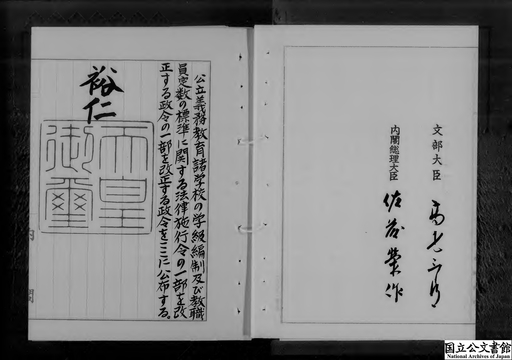 公立義務教育諸学校の学級編制及び教職
員定数の標準に関する法律施行令の一部を改
正する政令の一部を改正する政令をここに公布する。
裕仁
天皇
御璽
内
閣
文部大臣
内閣総理大臣 佐藤榮作
国立公文書館
National Archives of Japan